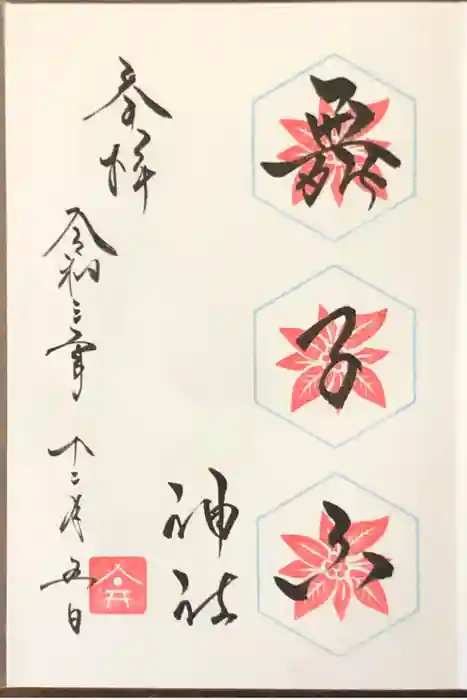 舞子六
神社
奉拝
令和三年 十二月五日